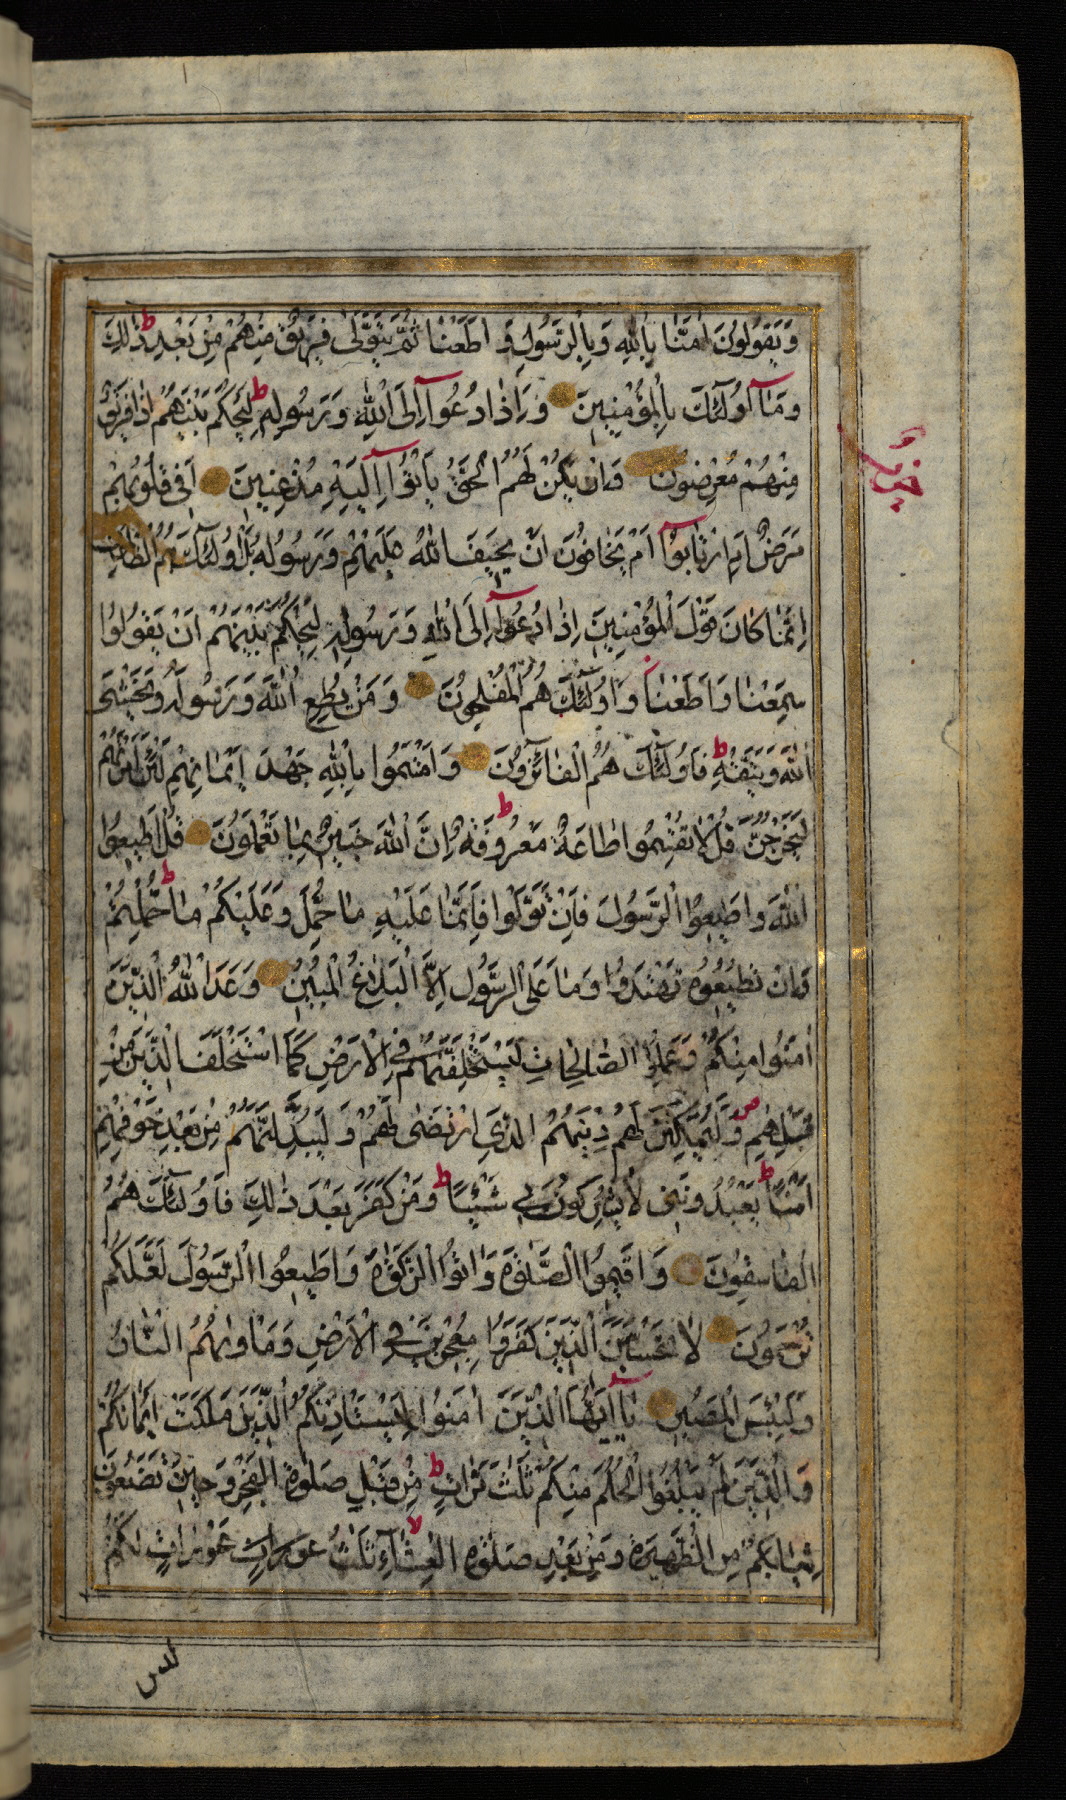 وَيَقُولُونَ اٰمَنَّا بِاللّٰهِ وَبِالرَّسُولِ وَاَطَعْنَا ثُمَّ يَتَوَلّٰى فَرِيقٌ مِنْهُمْ مِنْ بَعْدِ ذٰلِكَ ط
وَمَآ اُولٰٓئِكَ بِالْمُؤْمِنِينَ وَاِذَا دُعُوٓا اِلَى اللّٰهِ وَرَسُولِهِ ط لِيَحْكُمَ بَيْنَهُمْ اِذَا فَرِيقٌ
مِنْهُمْ مُعْرِضُونَ وَاِنْ يَكُنْ لَهُمُ الْحَقُّ يَأْتُوٓا اِلَيْهِ مُذْعِنِينَ اَفِي قُلُوبِهِمْ
مَرَضٌ اَمِ ارْتَابُوٓا اَمْ يَخَافُونَ اَنْ يَحِيفَ اللّٰهُ عَلَيْهِمْ وَرَسُولُهُ بَلْ اُولٰٓئِكَ هُمُ الظَّالِمُونَ
اِنَّمَا كَانَ قَوْلَ الْمُؤْمِنِينَ اِذَا دُعُوٓا اِلَى اللّٰهِ وَرَسُولِهِ لِيَحْكُمَ بَيْنَهُمْ اَنْ يَقُولُوا
سَمِعْنَا وَاَطَعْنَا وَاُولٰٓئِكَ هُمُ الْمُفْلِحُونَ وَمَنْ يُطِعِ اللّٰهَ وَرَسُولَهُ وَيَخْشَى
اللّٰهَ وَيَتَّقْهِ ط فَاُولٰٓئِكَ هُمُ الْفَآئِزُونَ وَاَقْسَمُوا بِاللّٰهِ جَهْدَ اَيْمَانِهِمْ لَئِنْ اَمَرْتَهُمْ
لَيَخْرُجُنَّ قُلْ لَا تُقْسِمُوا طَاعَةٌ مَعْرُوفَةٌ ط اِنَّ اللّٰهَ خَبِيرٌ بِمَا تَعْمَلُونَ قُلْ اَطِيعُوا
اللّٰهَ وَاَطِيعُوا الرَّسُولَ فَاِنْ تَوَلَّوْا فَاِنَّمَا عَلَيْهِ مَا حُمِّلَ وَعَلَيْكُمْ مَا حُمِّلْتُمْ ط
وَاِنْ تُطِيعُوهُ تَهْتَدُوا وَمَا عَلَى الرَّسُولِ اِلَّا الْبَلَاغُ الْمُبِينُ وَعَدَ اللّٰهُ الَّذِينَ
اٰمَنُوا مِنْكُمْ وَعَمِلُوا الصَّالِحَاتِ لَيَسْتَخْلِفَنَّهُمْ فِي الْاَرْضِ كَمَا اسْتَخْلَفَ الَّذِينَ مِنْ
قَبْلِهِمْ ص وَلَيُمَكِّنَنَّ لَهُمْ دِينَهُمُ الَّذِي ارْتَضٰى لَهُمْ وَلَيُبَدِّلَنَّهُمْ مِنْ بَعْدِ خَوْفِهِمْ
اَمْنًا ط يَعْبُدُونَنِي لَا يُشْرِكُونَ بِي شَيْئًا ط وَمَنْ كَفَرَ بَعْدَ ذٰلِكَ فَاُولٰٓئِكَ هُمُ
الْفَاسِقُونَ وَاَقِيمُوا الصَّلٰوةَ وَاٰتُوا الزَّكٰوةَ وَاَطِيعُوا الرَّسُولَ لَعَلَّكُمْ
تُرْحَمُونَ لَا تَحْسَبَنَّ الَّذِينَ كَفَرُوا مُعْجِزِينَ فِي الْاَرْضِ وَمَأْوٰيهُمُ النَّارُ
وَلَبِئْسَ الْمَصِيرُ يَآ اَيُّهَا الَّذِينَ اٰمَنُوا لِيَسْتَأْذِنْكُمُ الَّذِينَ مَلَكَتْ اَيْمَانُكُمْ
وَالَّذِينَ لَمْ يَبْلُغُوا الْحُلُمَ مِنْكُمْ ثَلٰثَ مَرَّاتٍ ط مِنْ قَبْلِ صَلٰوةِ الْفَجْرِ وَحِينَ تَضَعُونَ
ثِيَابَكُمْ مِنَ الظَّهِيرَةِ وَمِنْ بَعْدِ صَلٰوةِ الْعِشَآءِ لا ثَلٰثُ عَوْرَاتٍ عَوْرَاتٍ لَكُمْ